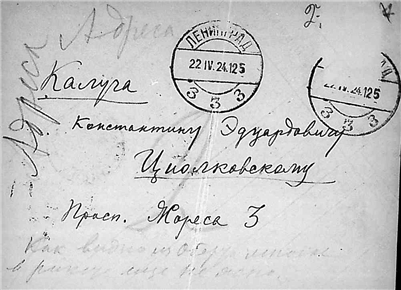 Г.
Адреса
Адреса
ЛЕНИНГРАД
22 IV. 24.12 5
3 3 3
22 IV. 24.12 5
3 3
Калуга
Константину Эдуардовичу
Циолковскому
Просп. Жореса 3
Как видно из
в